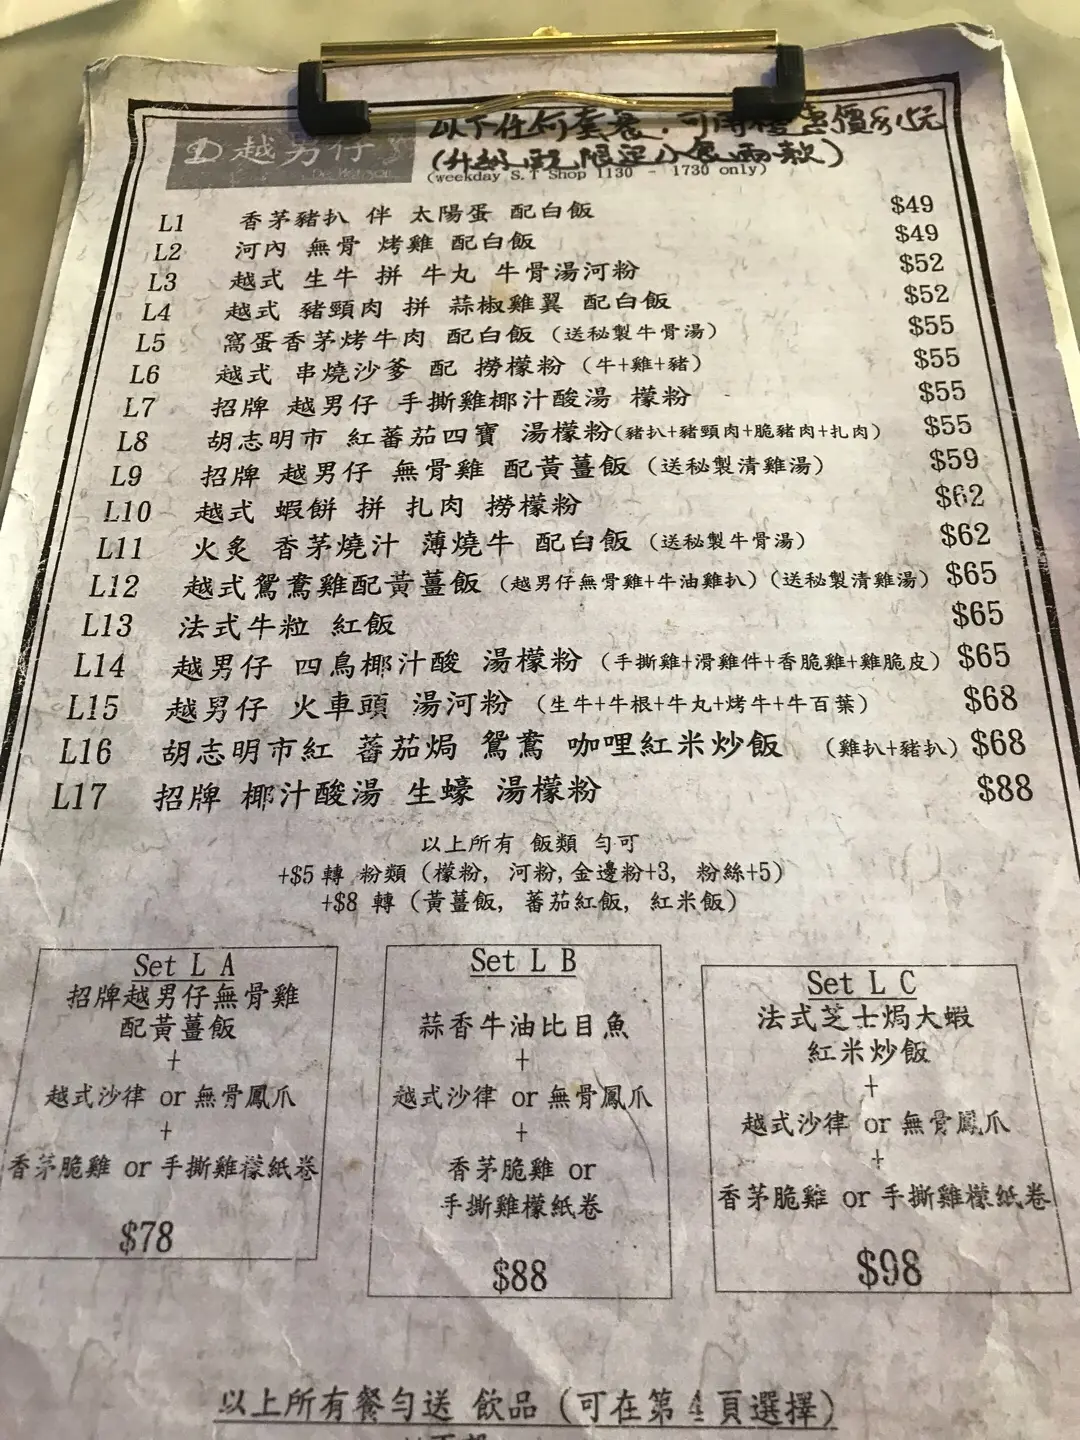 越男仔
以下任何套餐,可用優惠價$15元
(升級 限定小食兩款)
(weekday S.T Shop 1130 - 1730 only)
L1 香茅豬扒 伴 太陽蛋 配白飯 $49
L2 河內 無骨 烤雞 配白飯 $49
L3 越式 生牛 拼 牛丸 牛骨湯河粉 $52
L4 越式 豬頸肉 拼 蒜椒雞翼 配白飯 $52
L5 窩蛋香茅烤牛肉 配白飯 (送秘製牛骨湯) $55
L6 越式 串燒沙爹 配 撈檬粉 (牛+雞+豬) $55
L7 招牌 越男仔 手撕雞椰汁酸湯 檬粉 $55
L8 胡志明市 紅蕃茄四寶 湯檬粉(豬扒+豬頸肉+脆豬肉+扎肉) $55
L9 招牌 越男仔 無骨雞 配黃薑飯 (送秘製清雞湯) $59
L10 越式 蝦餅 拼 扎肉 撈檬粉 $62
L11 火炙 香茅燒汁 薄燒牛 配白飯 (送秘製牛骨湯) $62
L12 越式鴛鴦雞配黃薑飯 (越男仔無骨雞+牛油雞扒)(送秘製清雞湯) $65
L13 法式牛粒 紅飯 $65
L14 越男仔 四鳥椰汁酸 湯檬粉 (手撕雞+滑雞件+香脆雞+雞脆皮) $65
L15 越男仔 火車頭 湯河粉 (生牛+牛根+牛丸+烤牛+牛百葉) $68
L16 胡志明市紅 蕃茄焗 鴛鴦 咖哩紅米炒飯 (雞扒+豬扒) $68
L17 招牌 椰汁酸湯 生蠔 湯檬粉 $88
以上所有 飯類 勻可
+$5 轉 粉類 (檬粉, 河粉,金邊粉+3, 粉絲+5)
+$8 轉 (黃薑飯, 蕃茄紅飯, 紅米飯)
Set L A
招牌越男仔無骨雞
配黃薑飯
+
越式沙律 or 無骨鳳爪
+
香茅脆雞 or 手撕雞檬紙卷
$78
Set L B
蒜香牛油比目魚
+
越式沙律 or 無骨鳳爪
+
香茅脆雞 or
手撕雞檬紙卷
$88
Set L C
法式芝士焗大蝦
紅米炒飯
+
越式沙律 or 無骨鳳爪
+
香茅脆雞 or 手撕雞檬紙卷
$98
以上所有餐勻送 飲品 (可在第4頁選擇)